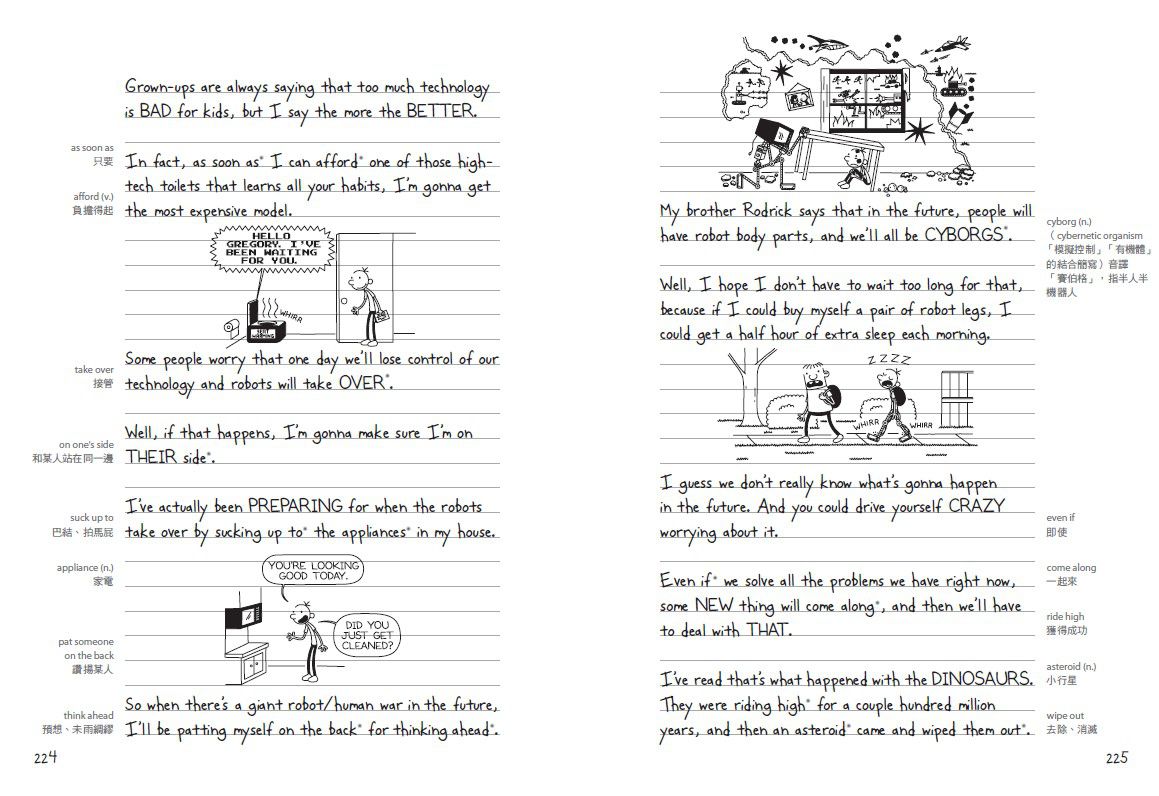 Grown-ups are always saying that too much technology
is BAD for kids, but I say the more the BETTER.
as soon as
只要
In fact, as soon as* I can afford* one of those high-
tech toilets that learns all your habits, I'm gonna get
the most expensive model.
afford (v.)
負擔得起
HELLO
GREGORY. I'VE
BEEN WAITING
FOR YOU.
WHIRR
SEAT
WARMING
Some people worry that one day we'll lose control of our
technology and robots will take OVER*.
take over
接管
Well, if that happens, I'm gonna make sure I'm on
THEIR side*.
on one's side
和某人站在同一邊
I've actually been PREPARING for when the robots
take over by sucking up to* the appliances* in my house.
suck up to
巴結、拍馬屁
appliance (n.)
家電
YOU'RE LOOKING
GOOD TODAY.
DID YOU
JUST GET
CLEANED?
pat someone
on the back
讚揚某人
So when there's a giant robot/human war in the future,
I'll be patting myself on the back* for thinking ahead*.
think ahead
預想、未雨綢繆
224
My brother Rodrick says that in the future, people will
have robot body parts, and we'll all be CYBORGS*.
cyborg (n.)
（ cybernetic organism
「模擬控制」「有機體」
的結合簡寫）音譯
「賽伯格」，指半人半
機器人
Well, I hope I don't have to wait too long for that,
because if I could buy myself a pair of robot legs, I
could get a half hour of extra sleep each morning.
ZZZZ
WHIRR
WHIRR
I guess we don't really know what's gonna happen
in the future. And you could drive yourself CRAZY
worrying about it.
even if
即使
Even if* we solve all the problems we have right now,
some NEW thing will come along*, and then we'll have
to deal with THAT.
come along
一起來
ride high
獲得成功
I've read that's what happened with the DINOSAURS.
They were riding high* for a couple hundred million
years, and then an asteroid* came and wiped them out*.
asteroid (n.)
小行星
wipe out
去除、消滅
225